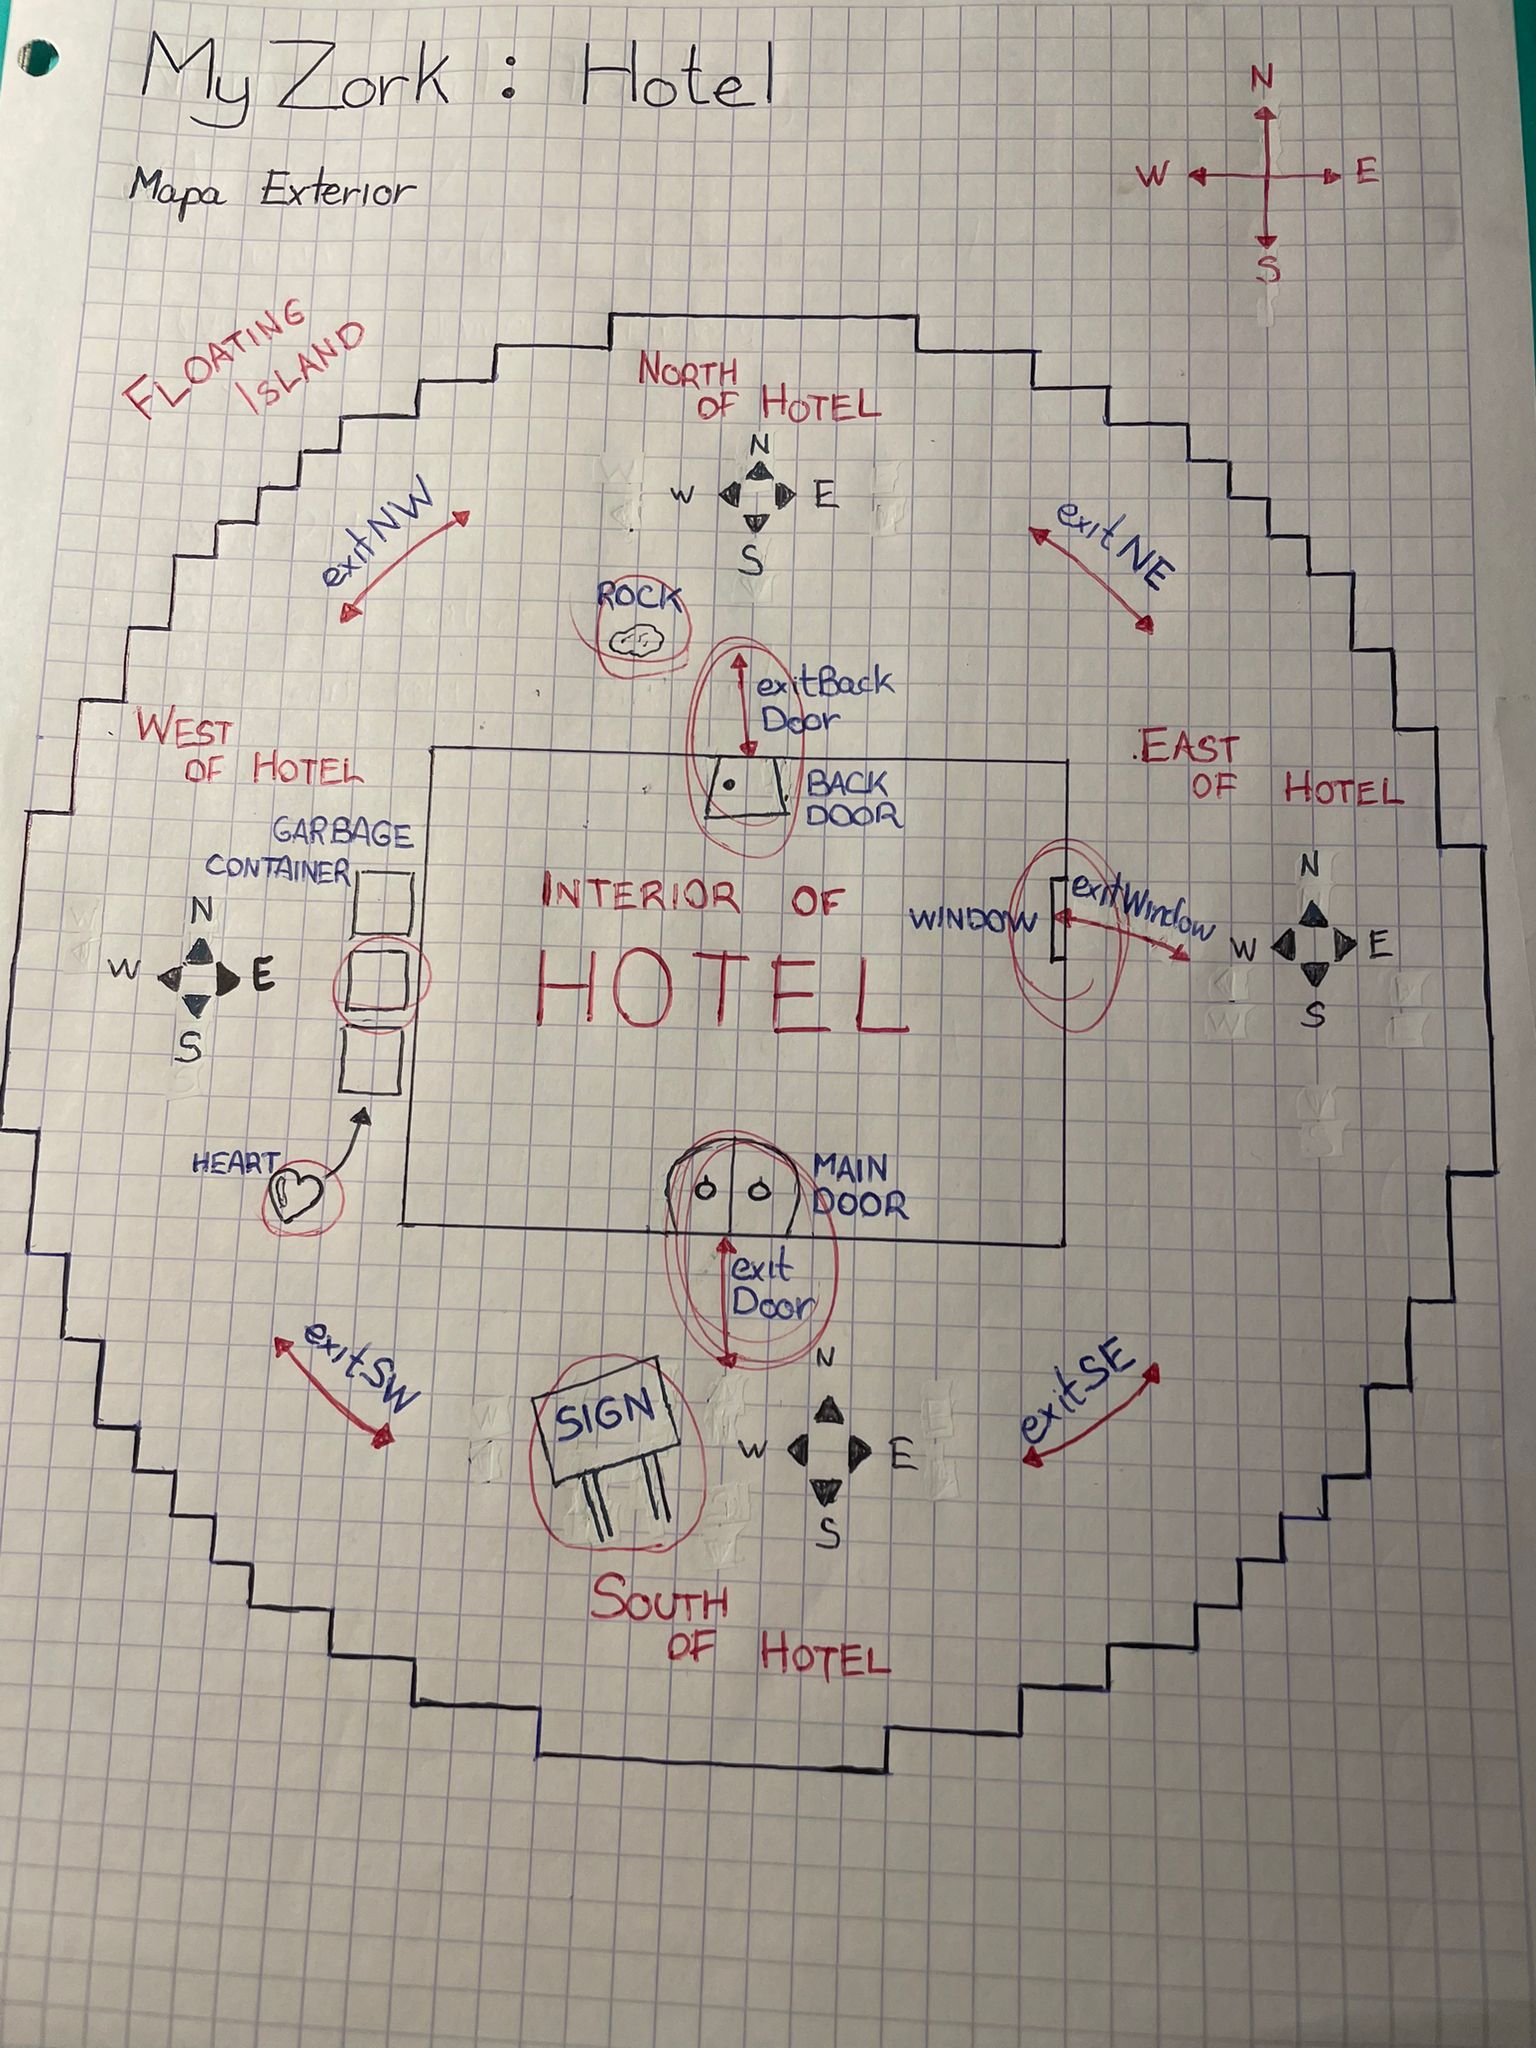 My Zork : Hotel
N
W E
S
Mapa Exterior
FLOATING
ISLAND
NORTH
OF HOTEL
N
W E
S
exitNW
exitNE
ROCK
exitBack
Door
WEST
OF HOTEL
EAST
OF HOTEL
BACK
DOOR
GARBAGE
CONTAINER
N
W E
S
INTERIOR OF
HOTEL
WINDOW
exitWindow
N
W E
S
HEART
MAIN
DOOR
exit
Door
exitSW
exitSE
SIGN
N
W E
S
SOUTH
OF HOTEL